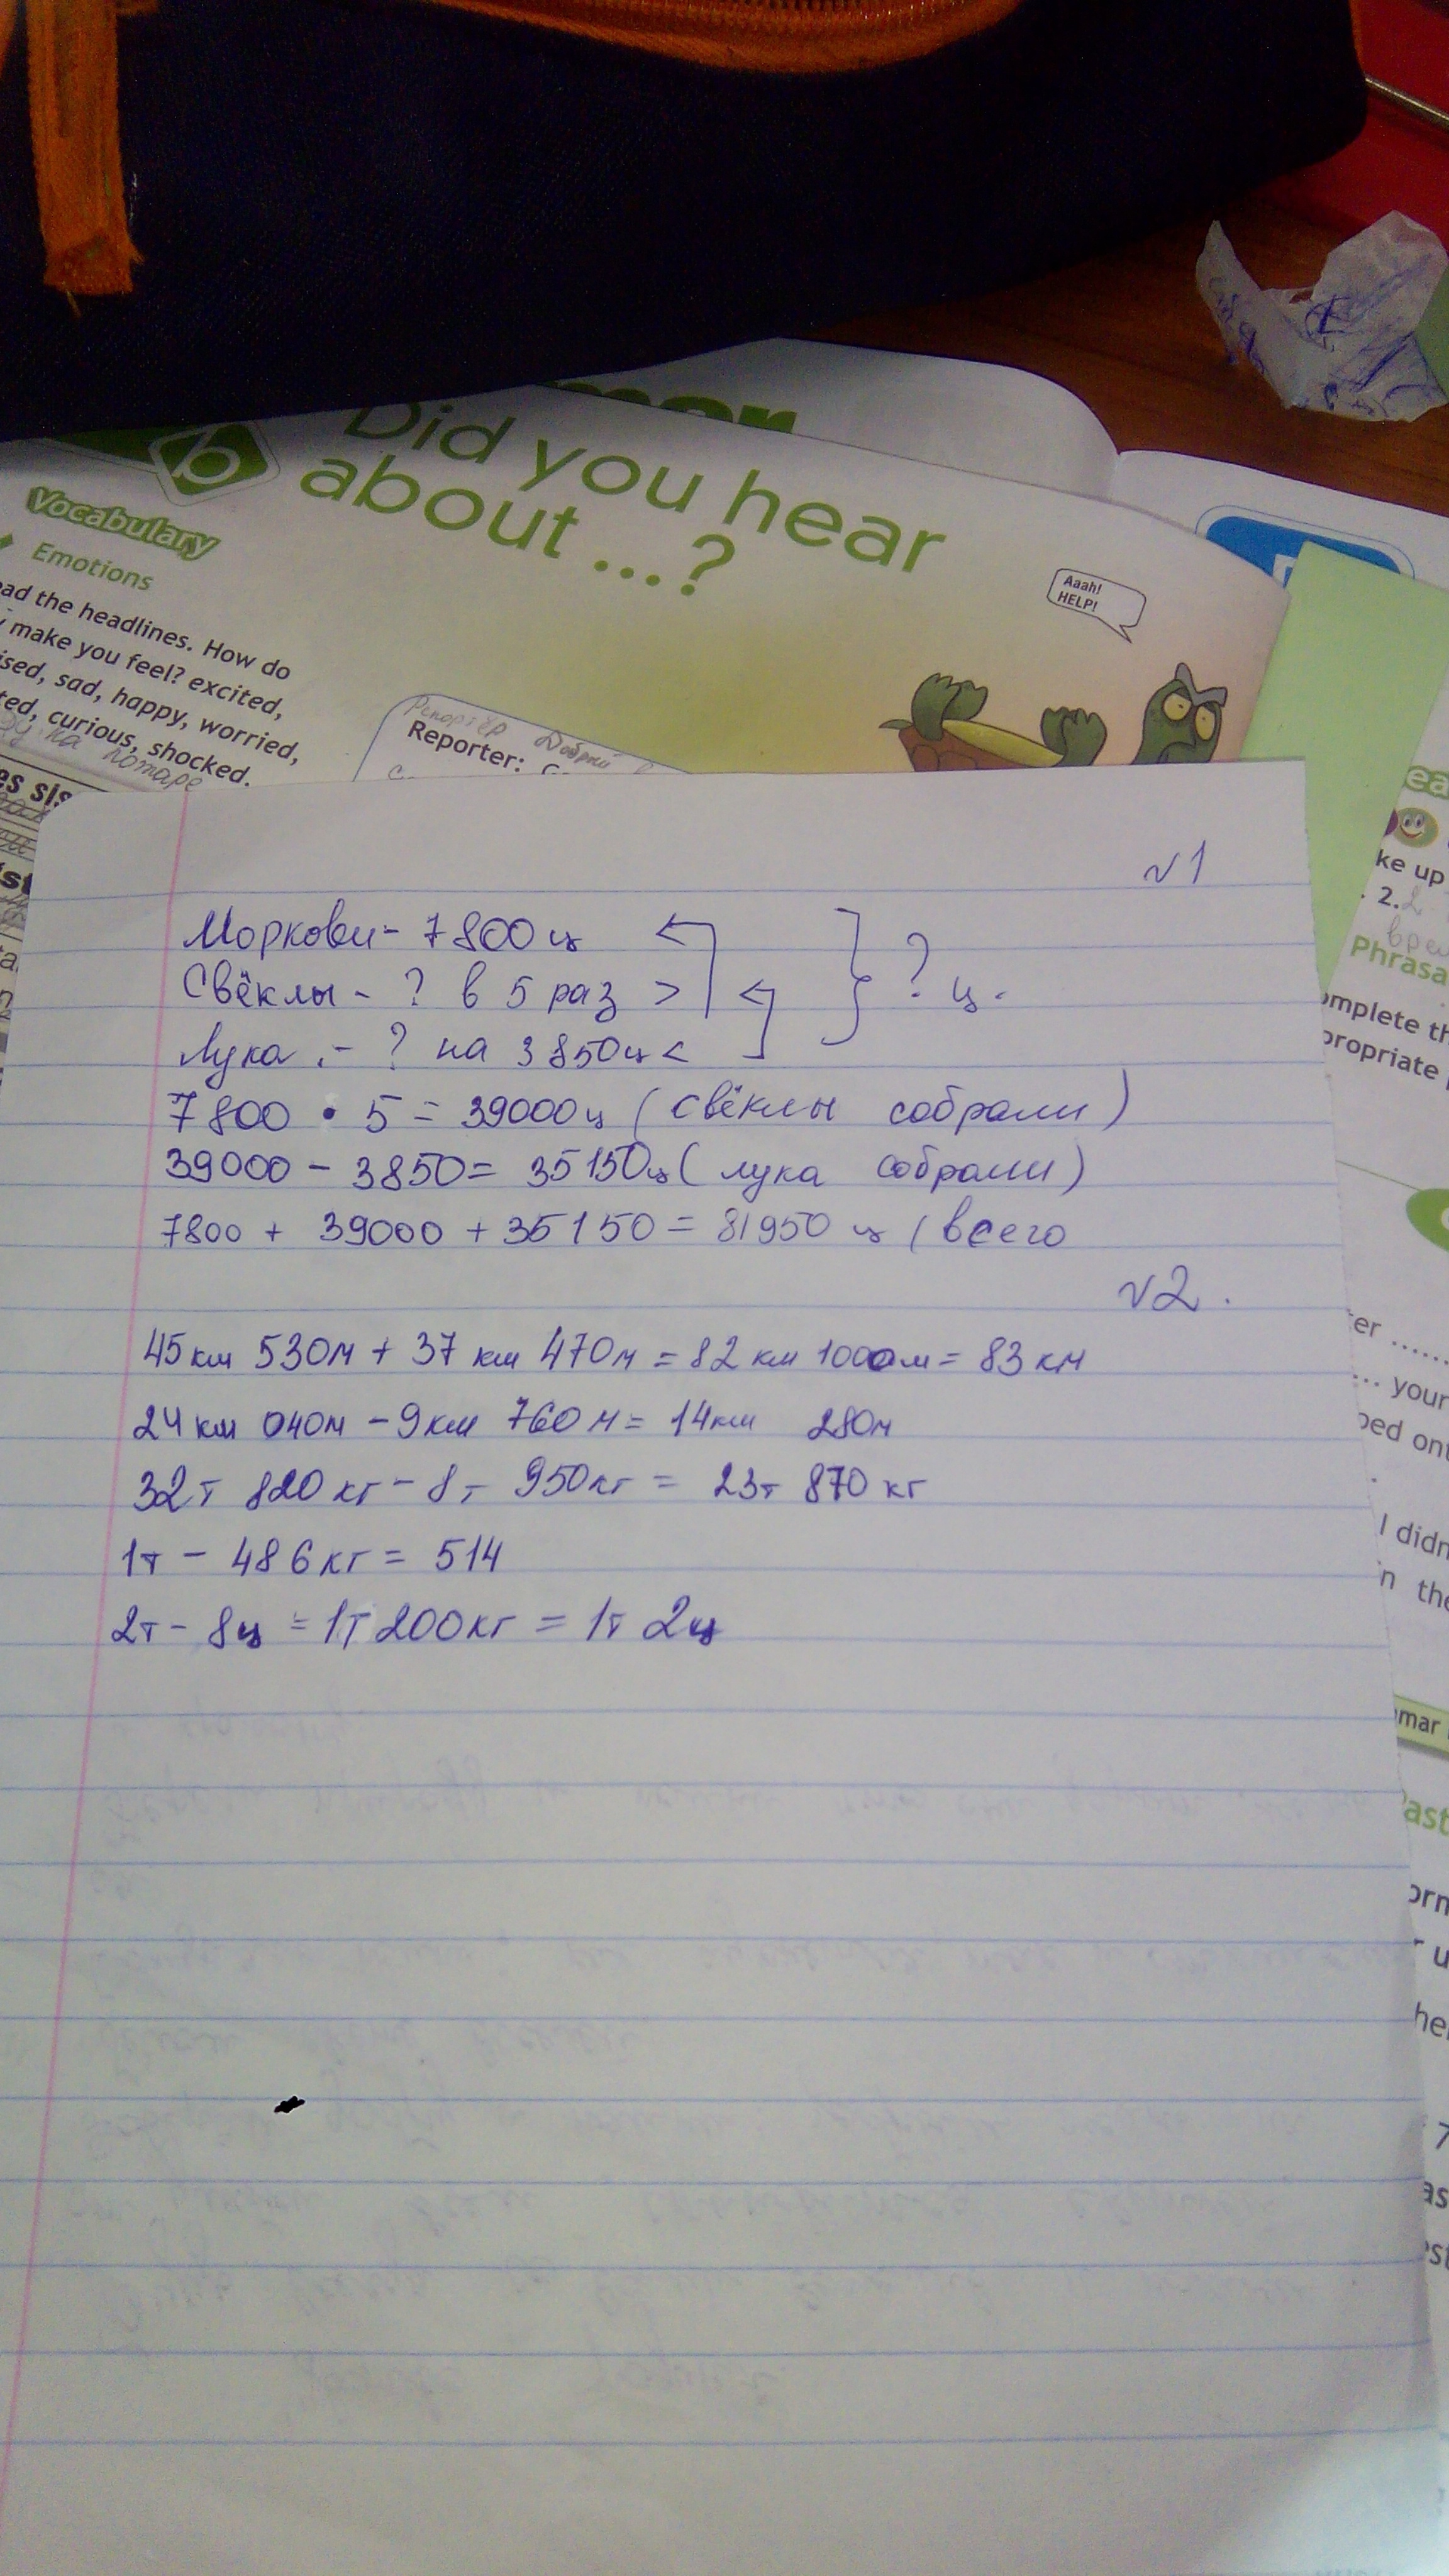 Did you hear
about ...?
b
Vocabulary
Emotions
ad the headlines. How do
make you feel? excited,
ised, sad, happy, worried,
ted, curious, shocked.
Reporter:
Aaah!
HELP!
ke up
2.
Phrasa
omplete th
propriate
√1
Моркови - 7800 ц
Свёклы - ? в 5 раз > ? ц.
Лука - ? на 3850ц <
7800 • 5 = 39000ц (свёклы собрали)
39000 - 3850 = 35150ц (лука собрали)
7800 + 39000 + 35150 = 81950 ц (всего
√2.
45км 530м + 37 км 470м = 82 км 1000м = 83 км
24 км 040м - 9км 760м = 14км 280м
32т 820 кг - 8т 950кг = 23т 870 кг
1т - 486кг = 514
2т - 8ц = 1т 200кг = 1т 2ц
er ......
... your
ped ont
I didn
n the
mar
ast
orn